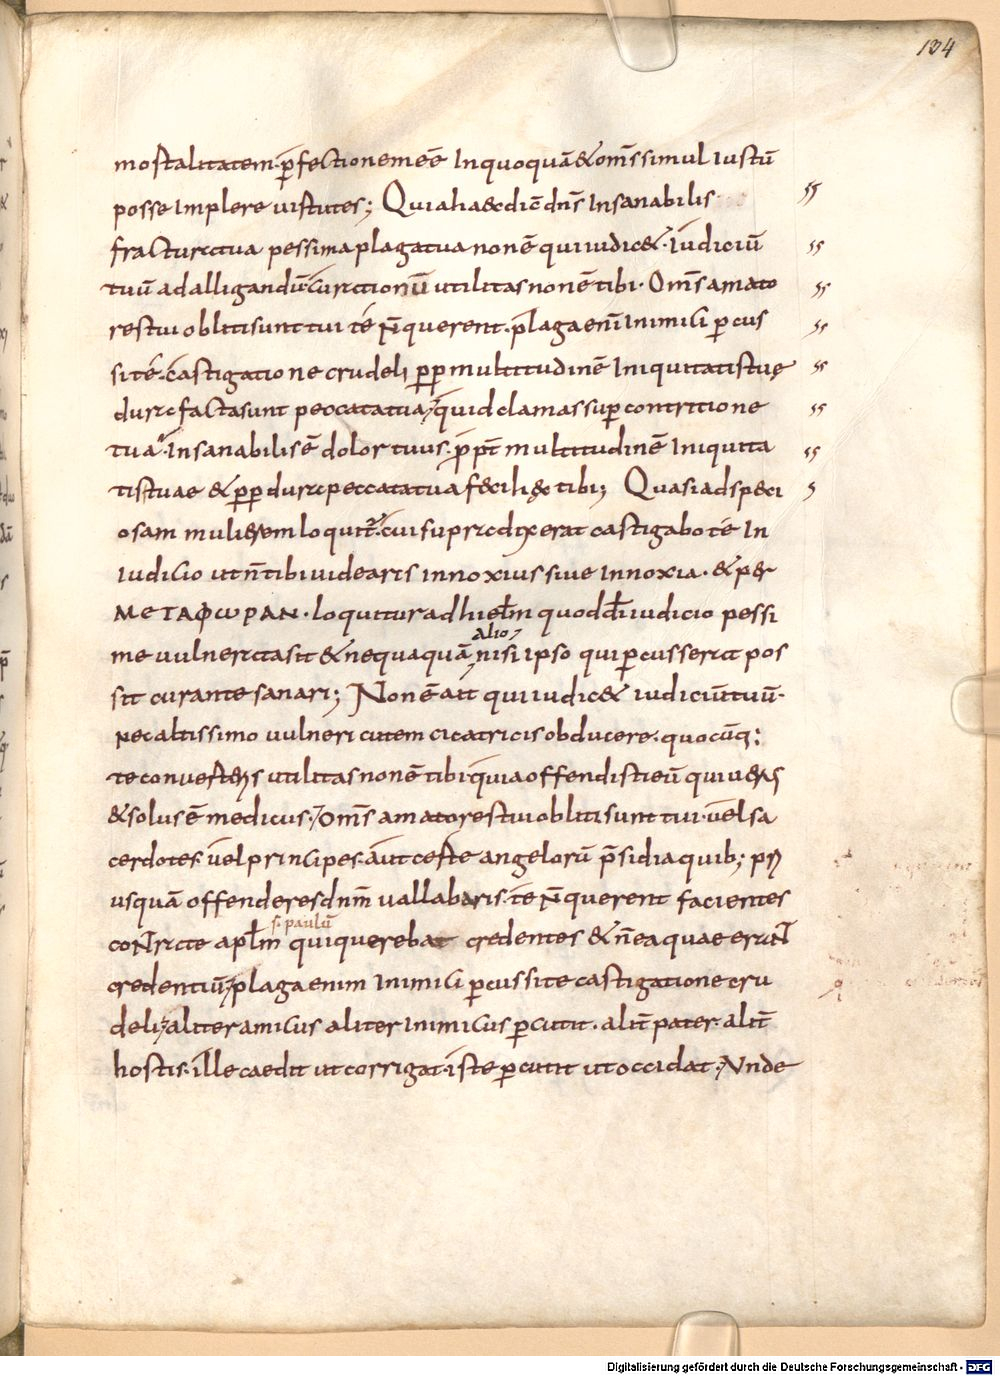 134
mortalitatem· p̄fectionem eē In quo quā & om̄s simul iustū
posse Implere uirtutes; Quia haec dic̄ dn̄s Insanabilis
fractura tua pessima plaga tua non ē qui iudic& · Iudiciū
tuū ad alligandū· curationū utilitas non ē tibi · Om̄s amato
res tui obliti sunt tui te n̄ querent · plaga eni Inimici p̄cus
si te · castigatione crudeli p̄p multitudinē Iniquitatis tuę
dura facta sunt peccata tua, quid clamas sup contritione
tua · Insanabilis ē dolor tuus · p̄pt̄ multitudinē Iniquita
tis tuae & p̄p dura peccata tua feci haec tibi; Quasi ad speci
osam mulierem loquit̄ · cui supra dixerat castigabo te In
Iudicio ut n̄ tibi uidearis innoxius siue Innoxia · & per
ΜΕΤΑΦωΡΑΝ · loquitur ad hierl̄m quod d̄i iudicio pessi
alio
me uulnerata sit & nequaquā nisi ipso qui p̄cusserat pos
sit curante sanari; Non ē ait qui iudic& iudiciū tuū·
nec altissimo uulneri cutem cicatricis obducere · quocūq;
te conuerteris utilitas non ē tibi quia offendisti eū qui uerus
& solus ē medicus · Om̄s amatores tui obliti sunt tui · uel sa
cerdotes · uel principes · aut certe angelorū p̄sidia quib; pri
usquā offenderes dn̄m uallabaris · te n̄ querent facientes
s· paulū
contra apl̄m qui querebat credentes & n̄ ea quae erant
credentiū, plaga enim Inimici p̄cussi te castigatione cru
deli, aliter amicus aliter Inimicus p̄cutit · alit̄ pater · alit̄
hostis · ille caedit ut corrigat · iste p̄cutit ut occidat · Unde
Digitalisierung gefördert durch die Deutsche Forschungsgemeinschaft · DFG